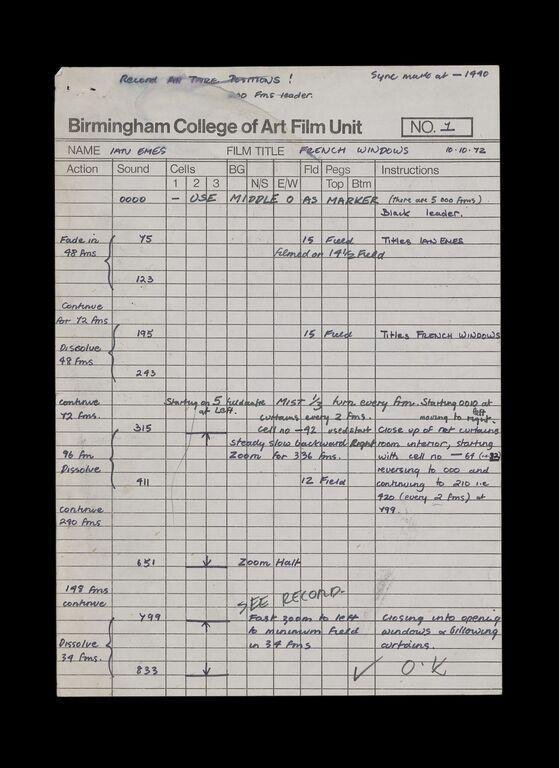 RECORD ALL TAKE POSITIONS !
Sync mark at - 1440
fms leader.
Birmingham College of Art Film Unit
NO. 1
NAME IAN EMES FILM TITLE FRENCH WINDOWS 10.10.72
Action Sound Cells BG Fld Pegs Instructions
1 2 3 N/S E/W Top Btm
0000 - USE MIDDLE O AS MARKER (there are 5 000 fms)
Black leader.
Fade in 75 15 Field Titles IAN EMES
48 fms filmed on 14 1/2 Field
123
Continue
for 72 fms
195 15 Field Titles FRENCH WINDOWS
Dissolve
48 fms
243
continue Starting on 5 field MIST 1/3 turn every frm. Starting 0010 at
72 fms. at left. curtains every 2 fms. moving to right.
left
315 cell no -92 used start Close up of net curtains
steady slow backward Right room interior, starting
96 fm Zoom for 336 fms. with cell no - 64
Dissolve reversing to 000 and
411 12 Field continuing to 210 i.e
420 (every 2 fms) at
continue 799.
240 fms
651 Zoom Halt
148 fms
continue
SEE RECORD.
799 Fast zoom to left Closing into opening
to minimum field windows & billowing
Dissolve in 34 fms curtains.
34 fms.
833 ✓ O.K